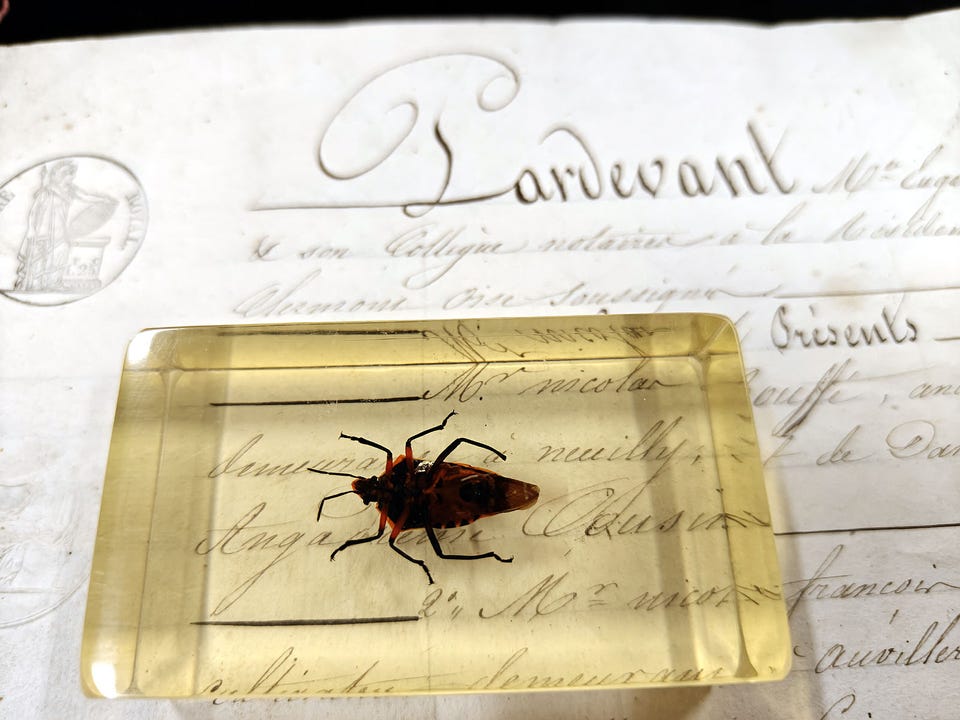 Pardevant Me Eug
& son Collègue notaires à la Résiden
Clermont Oise soussignés
Présents
Mr. nicolas ouffé, anc
demeurant à neuilly, de Da
Cousin
2° Mr nicol francois
auviller
cultivateur demeurant